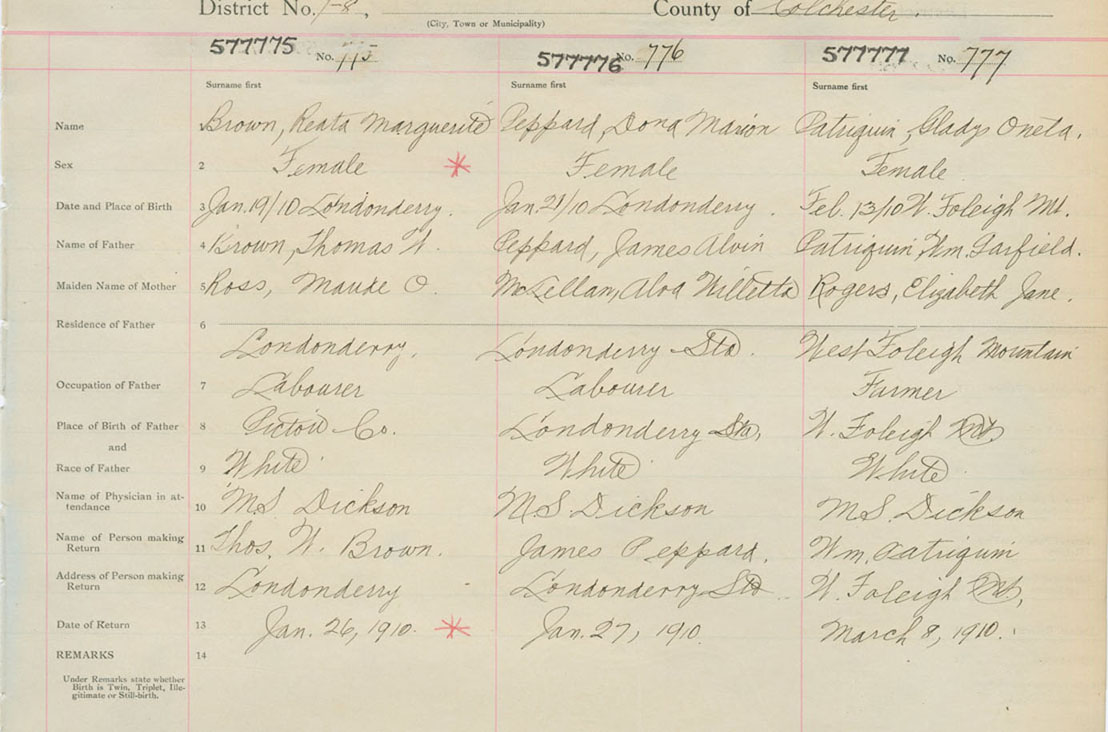 District No. 1-8, County of Colchester.
(City, Town or Municipality)
577775 No. 775 577776 No. 776 577777 No. 777
Surname first Surname first Surname first
Name 1 Brown, Reata Marguerite Peppard, Dona Marion Patriquin, Gladys Oneta.
Sex 2 Female Female Female
Date and Place of Birth 3 Jan. 19/10 Londonderry. Jan. 21/10 Londonderry. Feb. 13/10 W. Foleigh Mt.
Name of Father 4 Brown, Thomas W. Peppard, James Alvin Patriquin, Wm. Garfield.
Maiden Name of Mother 5 Ross, Maude O. McLellan, Alva Willetta Rogers, Elizabeth Jane.
Residence of Father 6
Londonderry. Londonderry Sta. West Foleigh Mountain
Occupation of Father 7 Labourer Labourer Farmer
Place of Birth of Father 8 Pictou Co. Londonderry Sta, W. Foleigh Mt.
and
Race of Father 9 White White White
Name of Physician in at-
tendance 10 M S Dickson M.S. Dickson M S. Dickson
Name of Person making
Return 11 Thos. W. Brown. James Peppard. Wm. Patriquin
Address of Person making
Return 12 Londonderry Londonderry Sta W. Foleigh Mt,
Date of Return 13 Jan. 26, 1910. Jan. 27, 1910. March 8, 1910.
REMARKS 14
Under Remarks state whether
Birth is Twin, Triplet, Ille-
gitimate or Still-birth.